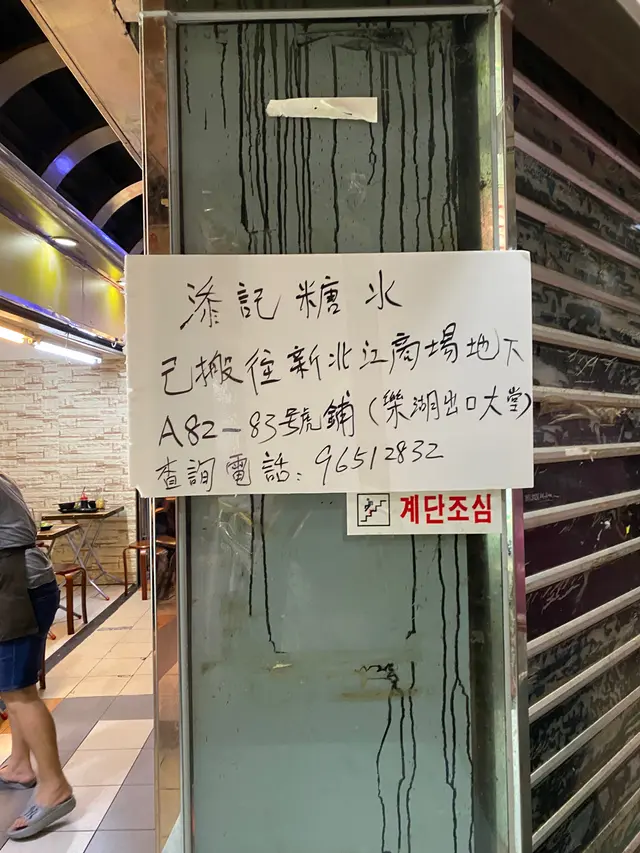 添記糖水
已搬往新北江商場地下
A82-83號鋪(樂湖出口大堂)
查詢電話:96512832
계단조심